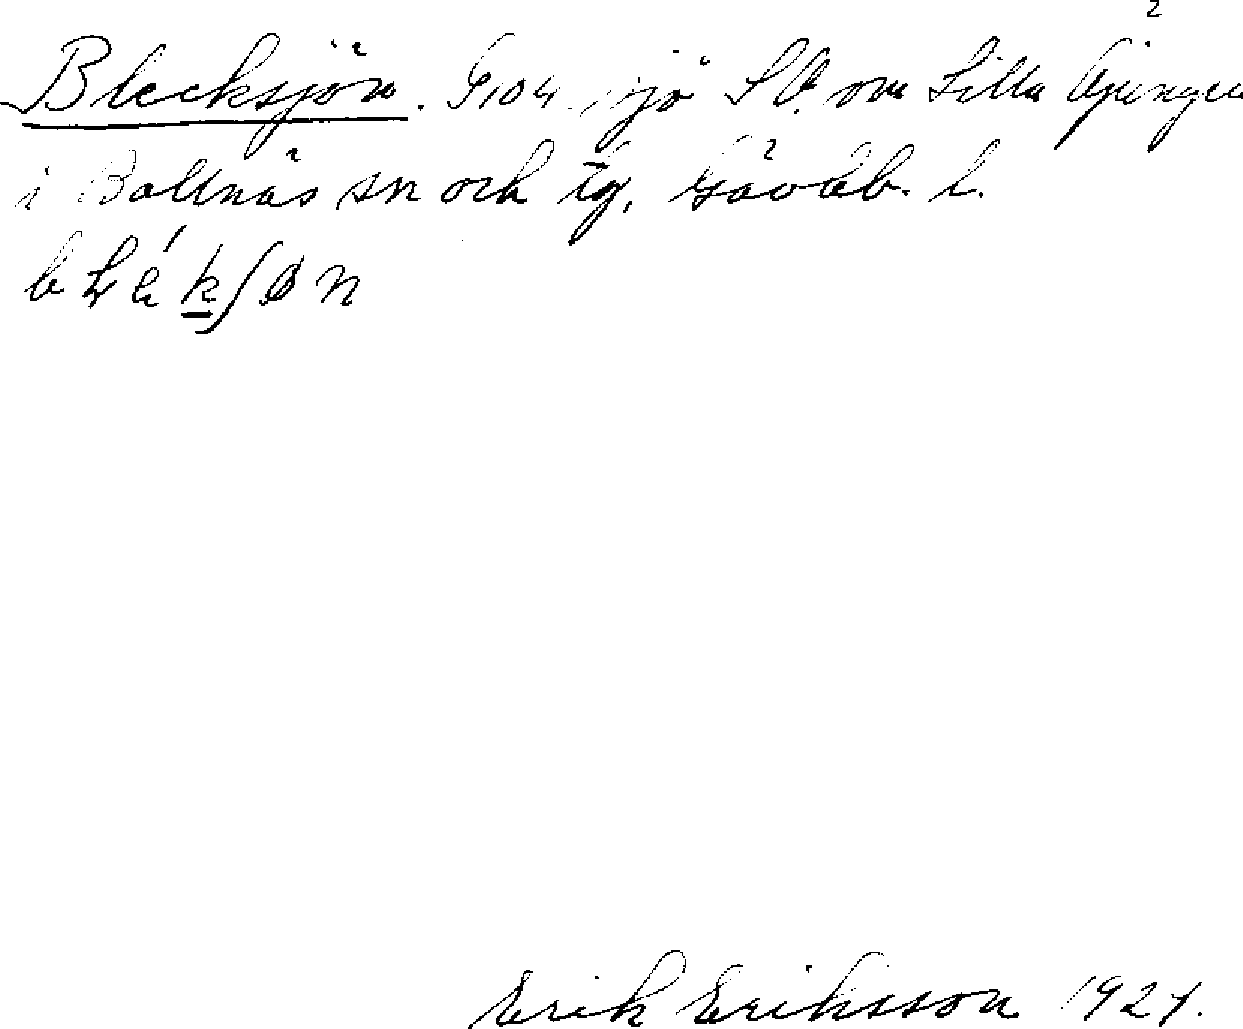 Blecksjön. G104 sjö SV. om Lilla Öjungen
i Bollnäs sn och tg, Gävleb. l.
Erik Eriksson 192